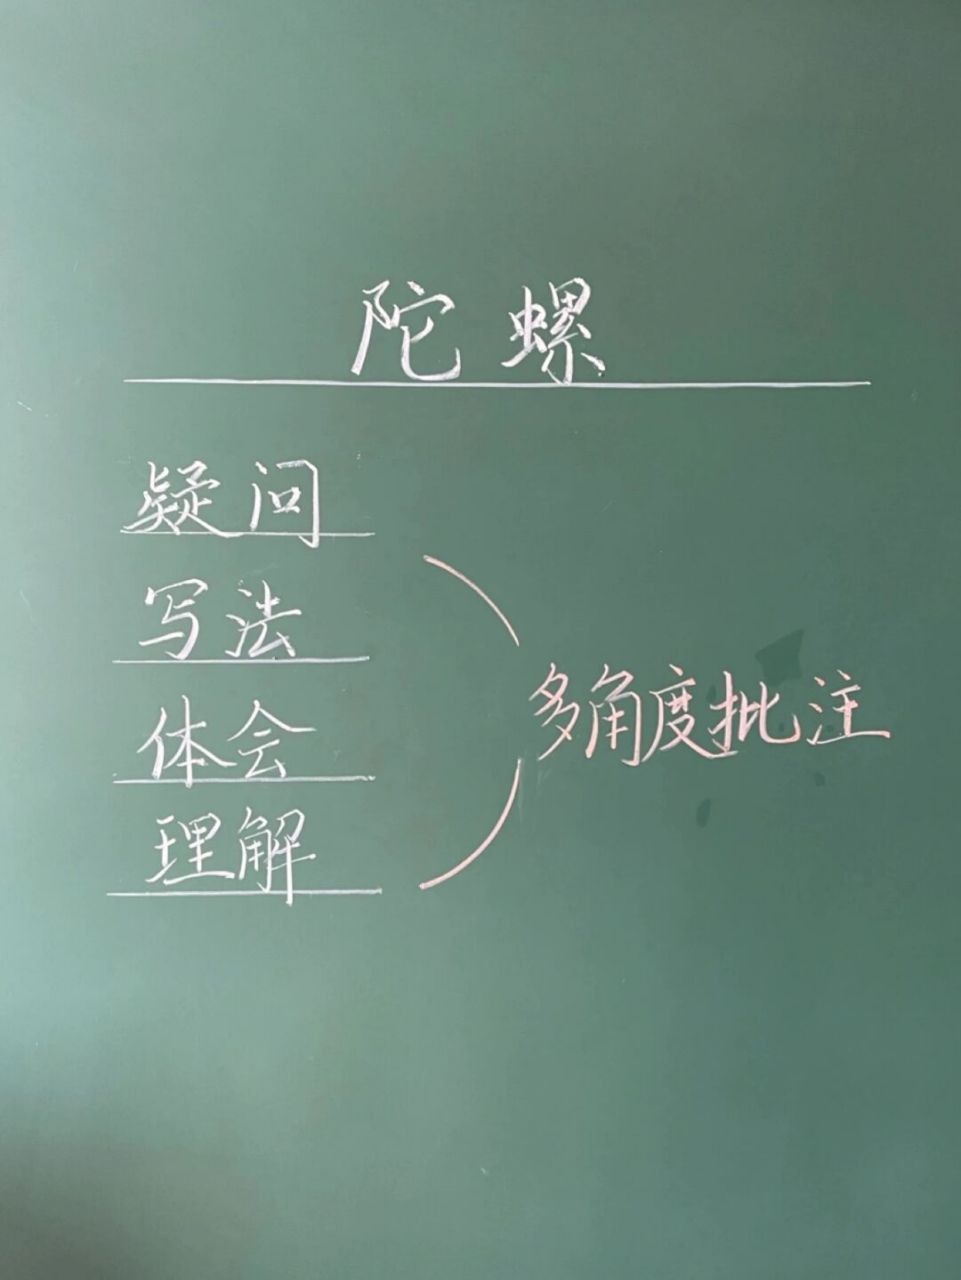 陀螺
疑问
写法
体会
理解
多角度批注